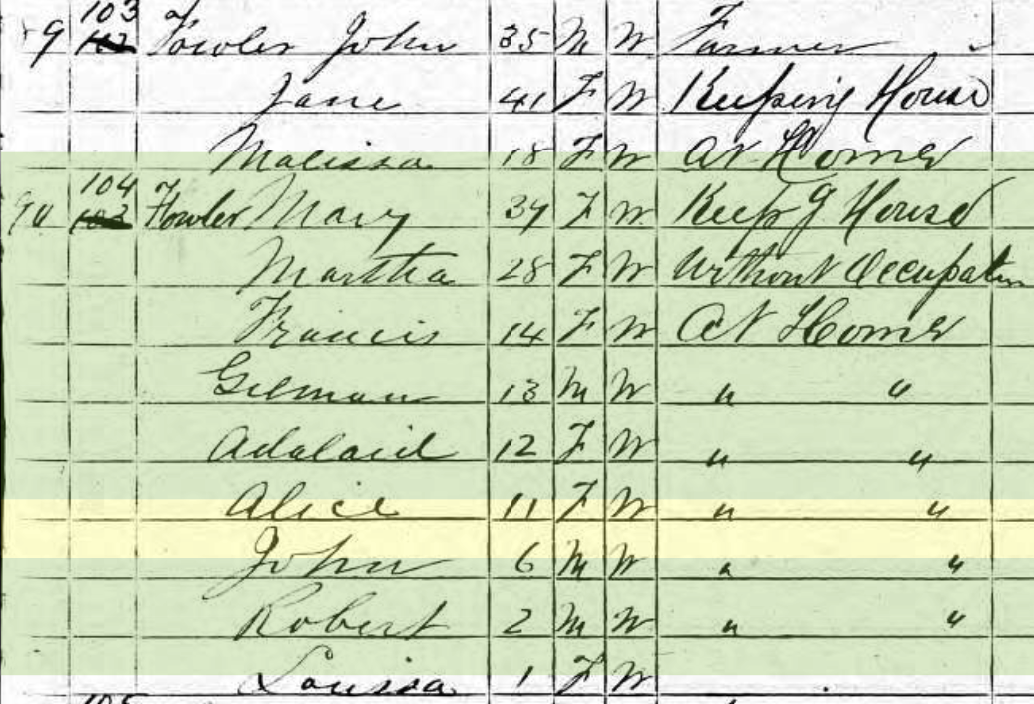 103
9 102 Fowler John 35 M W Farmer
Jane 41 F W Keeping House
Malissa 18 F W At Home
104
90 103 Fowler Mary 34 F W Keep g House
Martha 28 F W Without Occupation
Francis 14 F W At Home
Gilman 13 M W " "
Adalaid 12 F W " "
Alice 11 F W " "
John 6 M W " "
Robert 2 M W " "
Louisa 1 F W
105